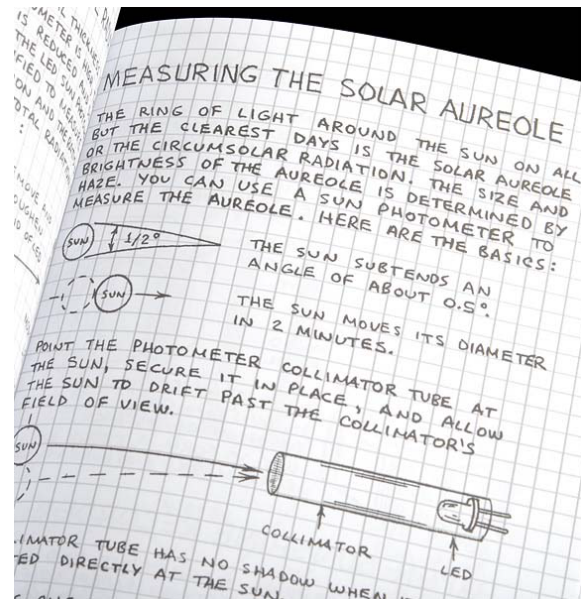 MEASURING THE SOLAR AUREOLE
THE RING OF LIGHT AROUND THE SUN ON ALL
BUT THE CLEAREST DAYS IS THE SOLAR AUREOLE
OR THE CIRCUMSOLAR RADIATION. THE SIZE AND
BRIGHTNESS OF THE AUREOLE IS DETERMINED BY
HAZE. YOU CAN USE A SUN PHOTOMETER TO
MEASURE THE AUREOLE. HERE ARE THE BASICS:
SUN
1/2°
THE SUN SUBTENDS AN
ANGLE OF ABOUT 0.5°.
SUN
THE SUN MOVES ITS DIAMETER
IN 2 MINUTES.
POINT THE PHOTOMETER COLLIMATOR TUBE AT
THE SUN, SECURE IT IN PLACE, AND ALLOW
THE SUN TO DRIFT PAST THE COLLIMATOR'S
FIELD OF VIEW.
SUN
COLLIMATOR
LED
LIMATOR TUBE HAS NO SHADOW WHEN
ED DIRECTLY AT THE SUN.